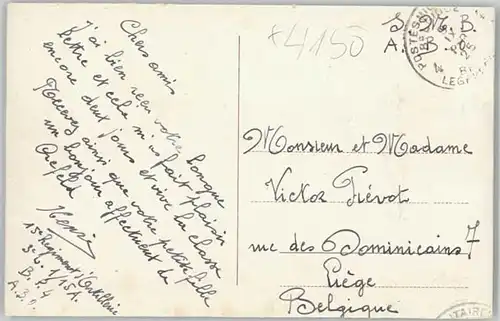 Chers amis
J'ai bien reçu votre longue
lettre et cela m'a fait plaisir
encore deux jours et vive la classe
Recevez ainsi que votre petite fille
un bonjour affectueux de
Crefeld
Henri
1er Régiment d'Artillerie
B.P. 4
A.B.O.
x4150
S. M. B.
A. B. O.
POSTES MILITAIRES
4
LEGERPOST
Monsieur et Madame
Victor Prévot
rue des Dominicains 7
Liège
Belgique